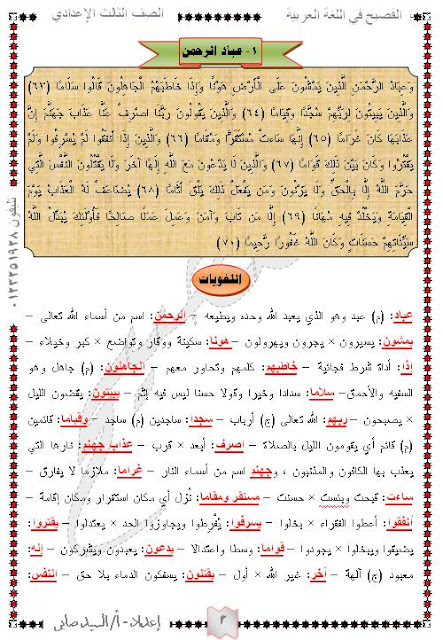 الفصيح في اللغة العربية
الصف الثالث الإعدادي
١- عباد الرحمن
وَعِبَادُ الرَّحْمَنِ الَّذِينَ يَمْشُونَ عَلَى الْأَرْضِ هَوْنًا وَإِذَا خَاطَبَهُمُ الْجَاهِلُونَ قَالُوا سَلَامًا (٦٣)
وَالَّذِينَ يَبِيتُونَ لِرَبِّهِمْ سُجَّدًا وَقِيَامًا (٦٤) وَالَّذِينَ يَقُولُونَ رَبَّنَا اصْرِفْ عَنَّا عَذَابَ جَهَنَّمَ إِنَّ
عَذَابَهَا كَانَ غَرَامًا (٦٥) إِنَّهَا سَاءَتْ مُسْتَقَرًّا وَمُقَامًا (٦٦) وَالَّذِينَ إِذَا أَنْفَقُوا لَمْ يُسْرِفُوا وَلَمْ
يَقْتُرُوا وَكَانَ بَيْنَ ذَلِكَ قَوَامًا (٦٧) وَالَّذِينَ لَا يَدْعُونَ مَعَ اللَّهِ إِلَهًا آَخَرَ وَلَا يَقْتُلُونَ النَّفْسَ الَّتِي
حَرَّمَ اللَّهُ إِلَّا بِالْحَقِّ وَلَا يَزْنُونَ وَمَنْ يَفْعَلْ ذَلِكَ يَلْقَ أَثَامًا (٦٨) يُضَاعَفْ لَهُ الْعَذَابُ يَوْمَ
الْقِيَامَةِ وَيَخْلُدْ فِيهِ مُهَانًا (٦٩) إِلَّا مَنْ تَابَ وَآَمَنَ وَعَمِلَ عَمَلًا صَالِحًا فَأُولَئِكَ يُبَدِّلُ اللَّهُ
سَيِّئَاتِهِمْ حَسَنَاتٍ وَكَانَ اللَّهُ غَفُورًا رَحِيمًا (٧٠)
اللغويات
عباد: (م) عبد وهو الذي يعبد الله وحده ويطيعه – الرحمن: اسم من أسماء الله تعالى –
يمشون: يسيرون × يجرون ويهرولون – هونا: سكينة ووقار وتواضع × كبر وخيلاء –
إذا: أداة شرط فجائية – خاطبهم: كلمهم وتحاور معهم – الجاهلون: (م) جاهل وهو
السفيه والأحمق– سلاما: سدادا وخيرا وقولا حسنا ليس فيه إثم – يبيتون: يقضون الليل
× يصبحون – ربهم: الله تعالى (ج) أرباب – سجدا: ساجدين (م) ساجد – وقياما: قائمين
(م) قائم أي يقومون الليل بالصلاة – اصرف: أبعد × قرب – عذاب جهنم: نارها التي
يعذب بها الكافون والمذنبون ، وجهنم اسم من أسماء النار – غراما: ملازما لا يفارق –
ساءت: قبحت وبئست × حسنت – مستقر ومقاما: نُزل أي مكان استقرار ومكان إقامة –
أنفقوا: أعطوا الفقراء × بخلوا – يسرفوا: يُفْرطوا ويجاوزوا الحد × يعتدلوا – يقتروا:
يضيقوا ويبخلوا × يجودوا – قواما: وسطا واعتدالا – يدعون: يعبدون ويشركون – إله:
معبود (ج) آلهة – آخر: غير الله × أول – يقتلون: يسفكون الدماء بلا حق – النفس:
٢
إعداد - أ/ السيد صابر